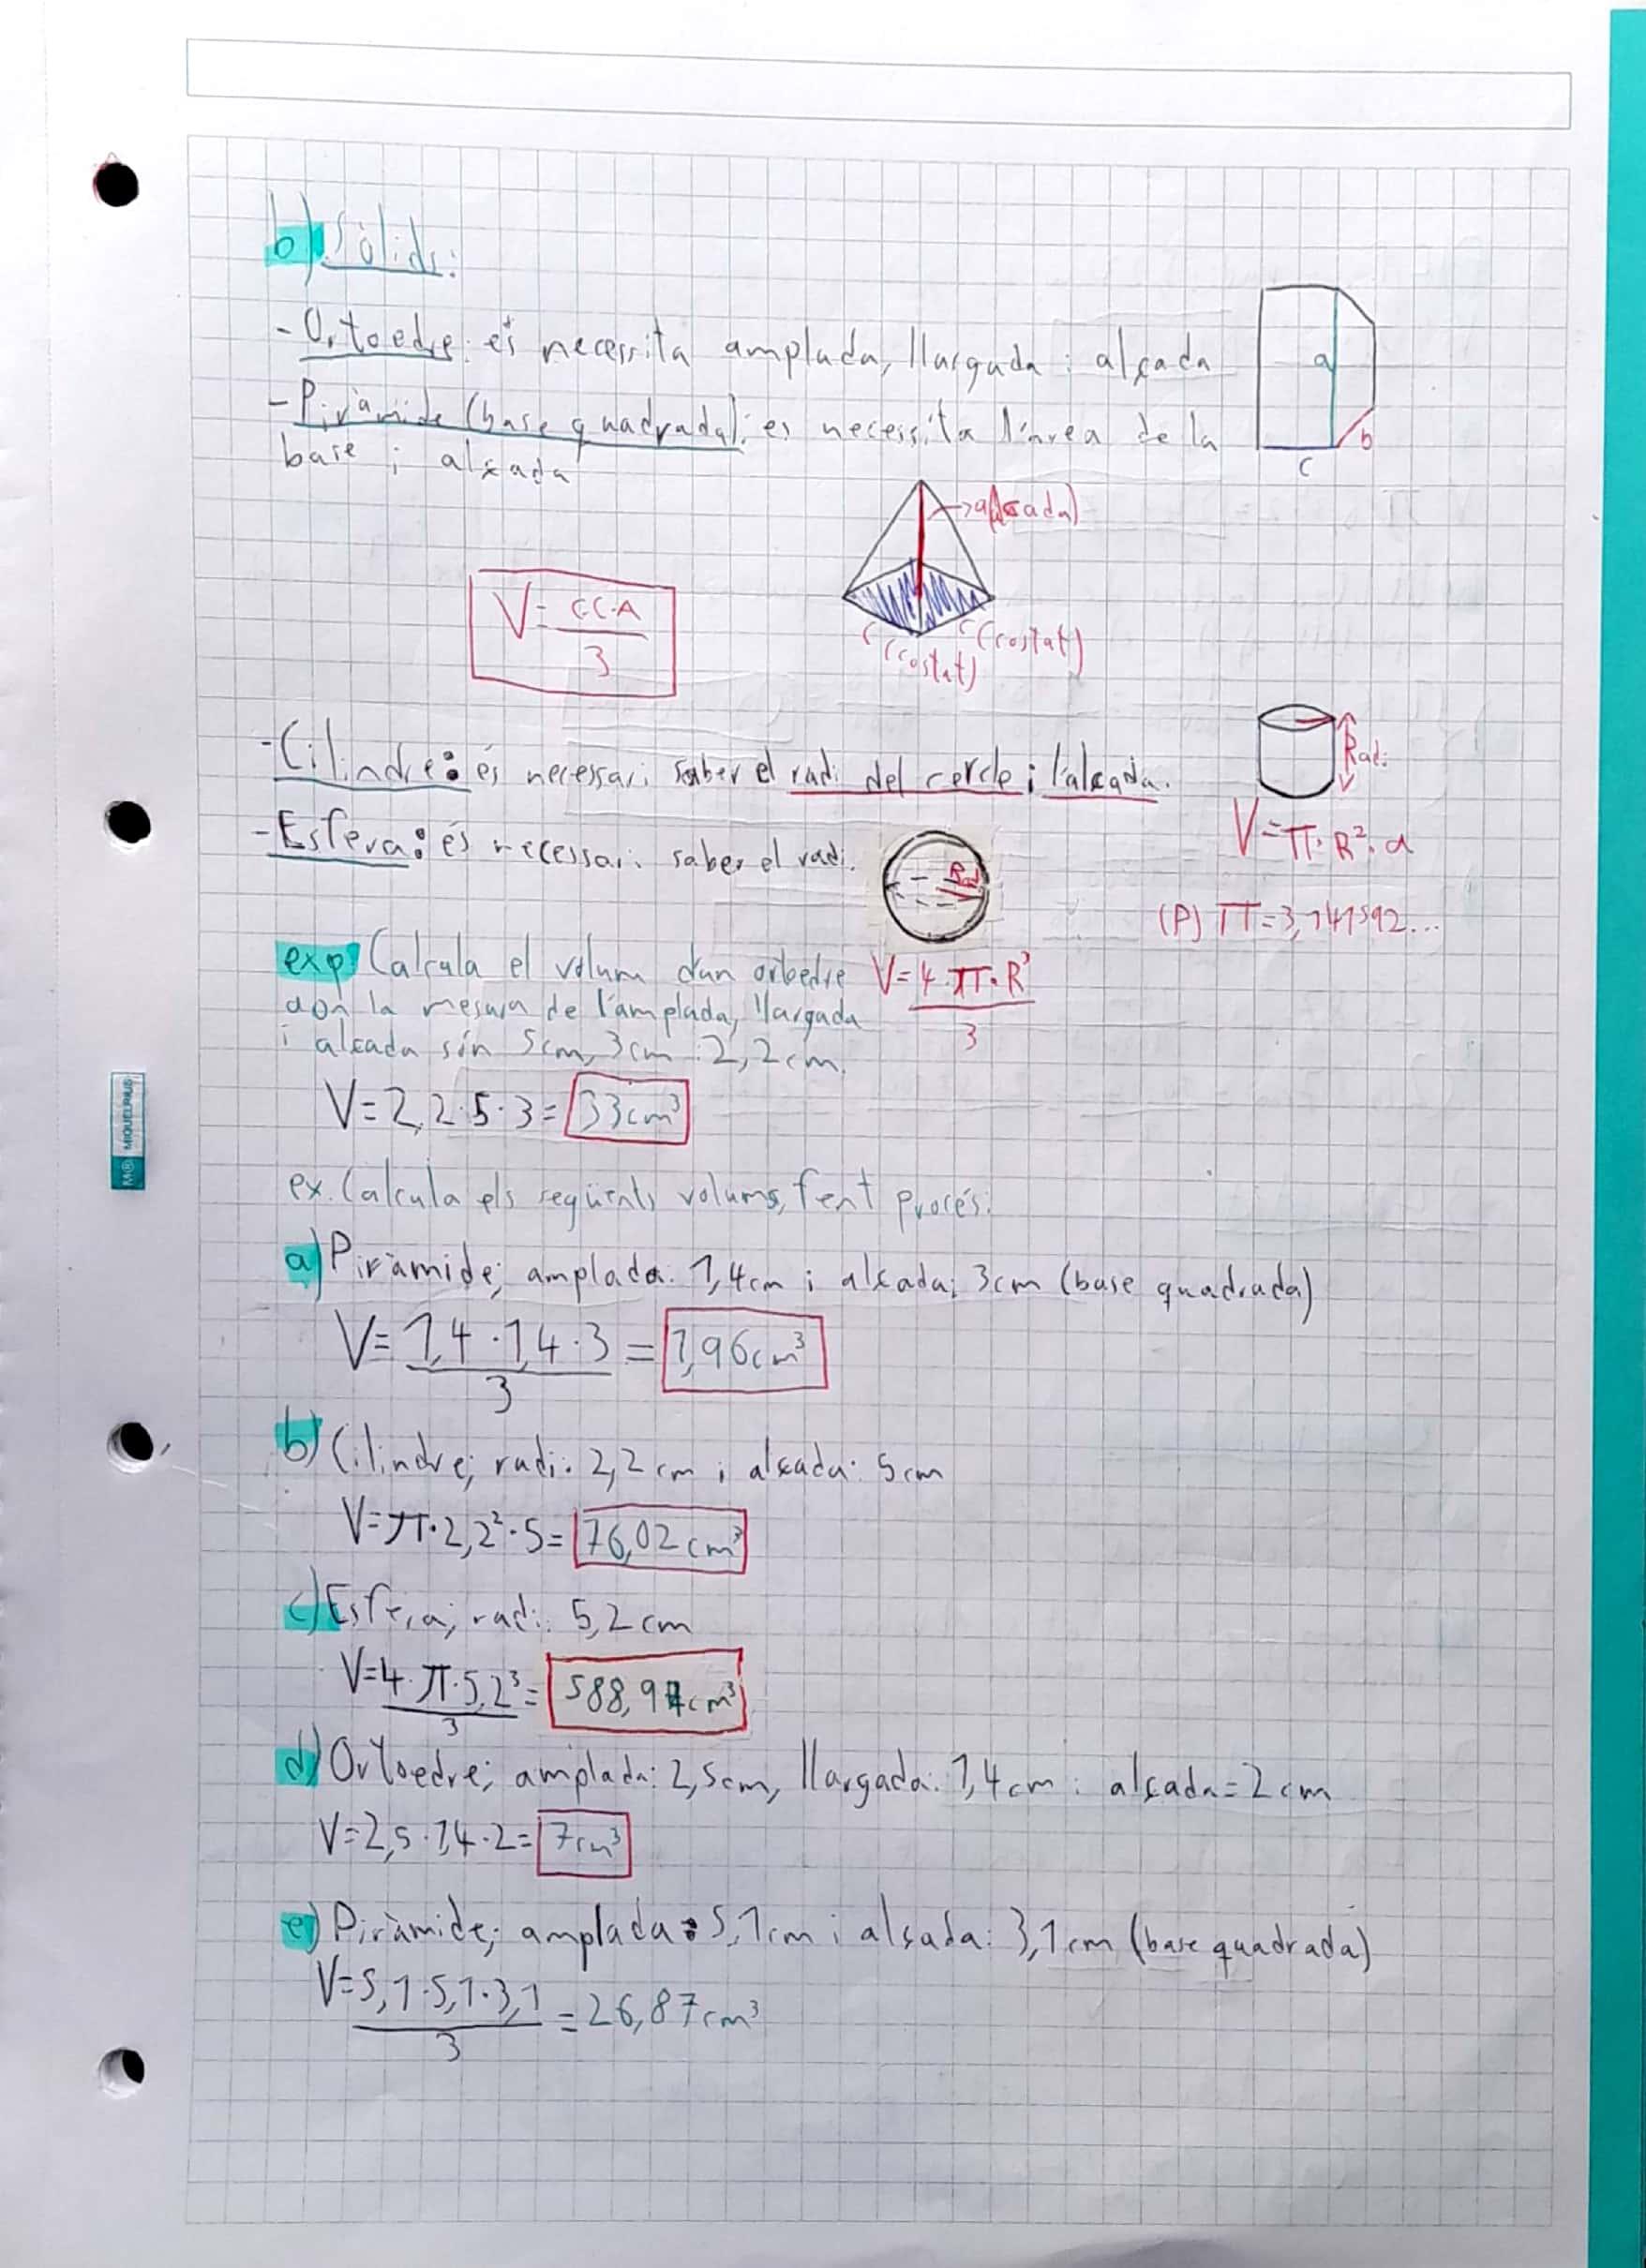 b) Sòlids:
- Ortoedre: és necessita amplada, llargada i alçada
a
b
c
- Piràmide (base quadrada): es necessita l'àrea de la
base i alçada
→ a(alçada)
V = C·C·A
3
c (costat)
c (costat)
- Cilindre: és necessari saber el radi del cercle i l'alçada.
Radi
V = π·R²·a
- Esfera: és necessari saber el radi.
(P) π = 3,141592...
exp) Calcula el volum d'un ortoedre
V = 4·π·R³
3
don la mesura de l'amplada, llargada
i alçada són 5cm, 3cm i 2,2cm.
V = 2,2·5·3 = 33cm³
ex. Calcula els següents volums, fent procés:
a) Piràmide; amplada: 1,4cm i alçada: 3cm (base quadrada)
V = 1,4·1,4·3 = 1,96cm³
3
b) Cilindre; radi: 2,2cm i alçada: 5cm
V = π·2,2²·5 = 76,02cm³
c) Esfera; radi: 5,2cm
V = 4·π·5,2³ = 588,97cm³
3
d) Ortoedre; amplada: 2,5cm, llargada: 1,4cm i alçada = 2cm
V = 2,5·1,4·2 = 7cm³
e) Piràmide; amplada: 5,1cm i alçada: 3,1cm (base quadrada)
V = 5,1·5,1·3,1 = 26,87cm³
3
MIQUELRIUS